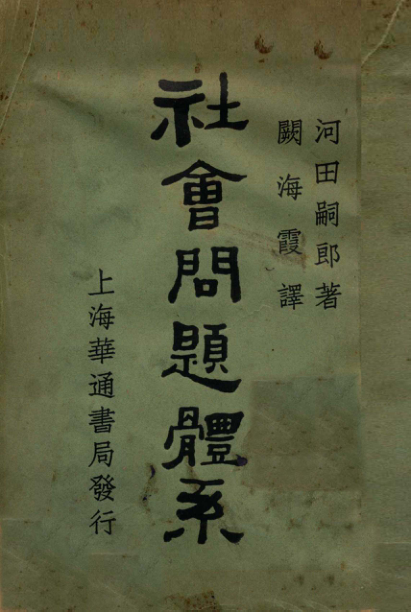 河田嗣郎著
闕海霞譯
社會問題體系
上海華通書局發行